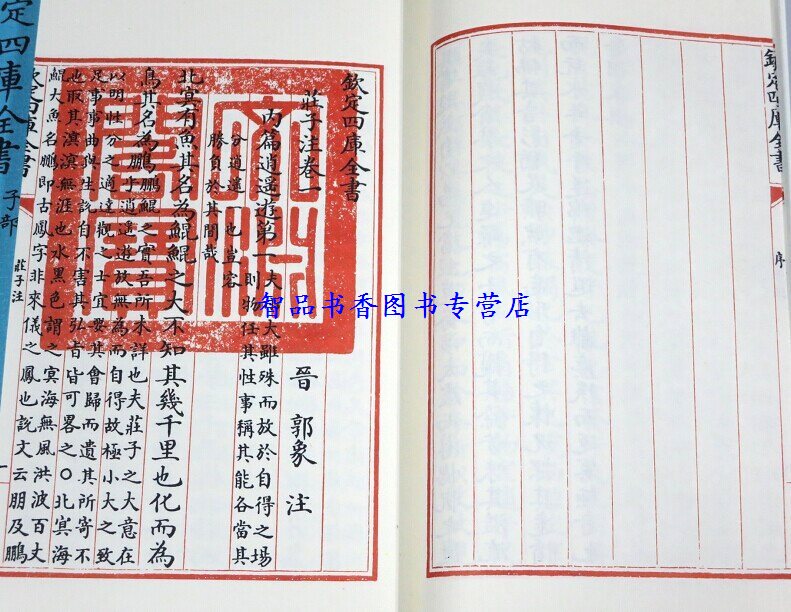 欽定四庫全書
序
欽定四庫全書
莊子注卷一
晉 郭象 注
內篇逍遙遊第一
夫小大雖殊而放於自得之場
則物任其性事稱其能各當其
分逍遙一也豈容
勝負於其間哉
北冥有魚其名為鯤鯤之大不知其幾千里也化而為
鳥其名為鵬
鵬鯤之實吾所未詳也夫莊子之大意在
乎逍遙遊放無為而自得故極小大之致
以明性分之適達觀之士宜要其會歸而遺其所寄不
足事事曲與生說自不害其弘旨皆可畧之○北冥海
也取其溟漠無涯也水黑色謂之冥海無風洪波百丈
鯤大魚名鵬即古鳳字非來儀之鳳也說文云朋及鵬
欽定四庫全書
莊子注
定四庫全書
子部
文淵閣寶
智品书香图书专营店